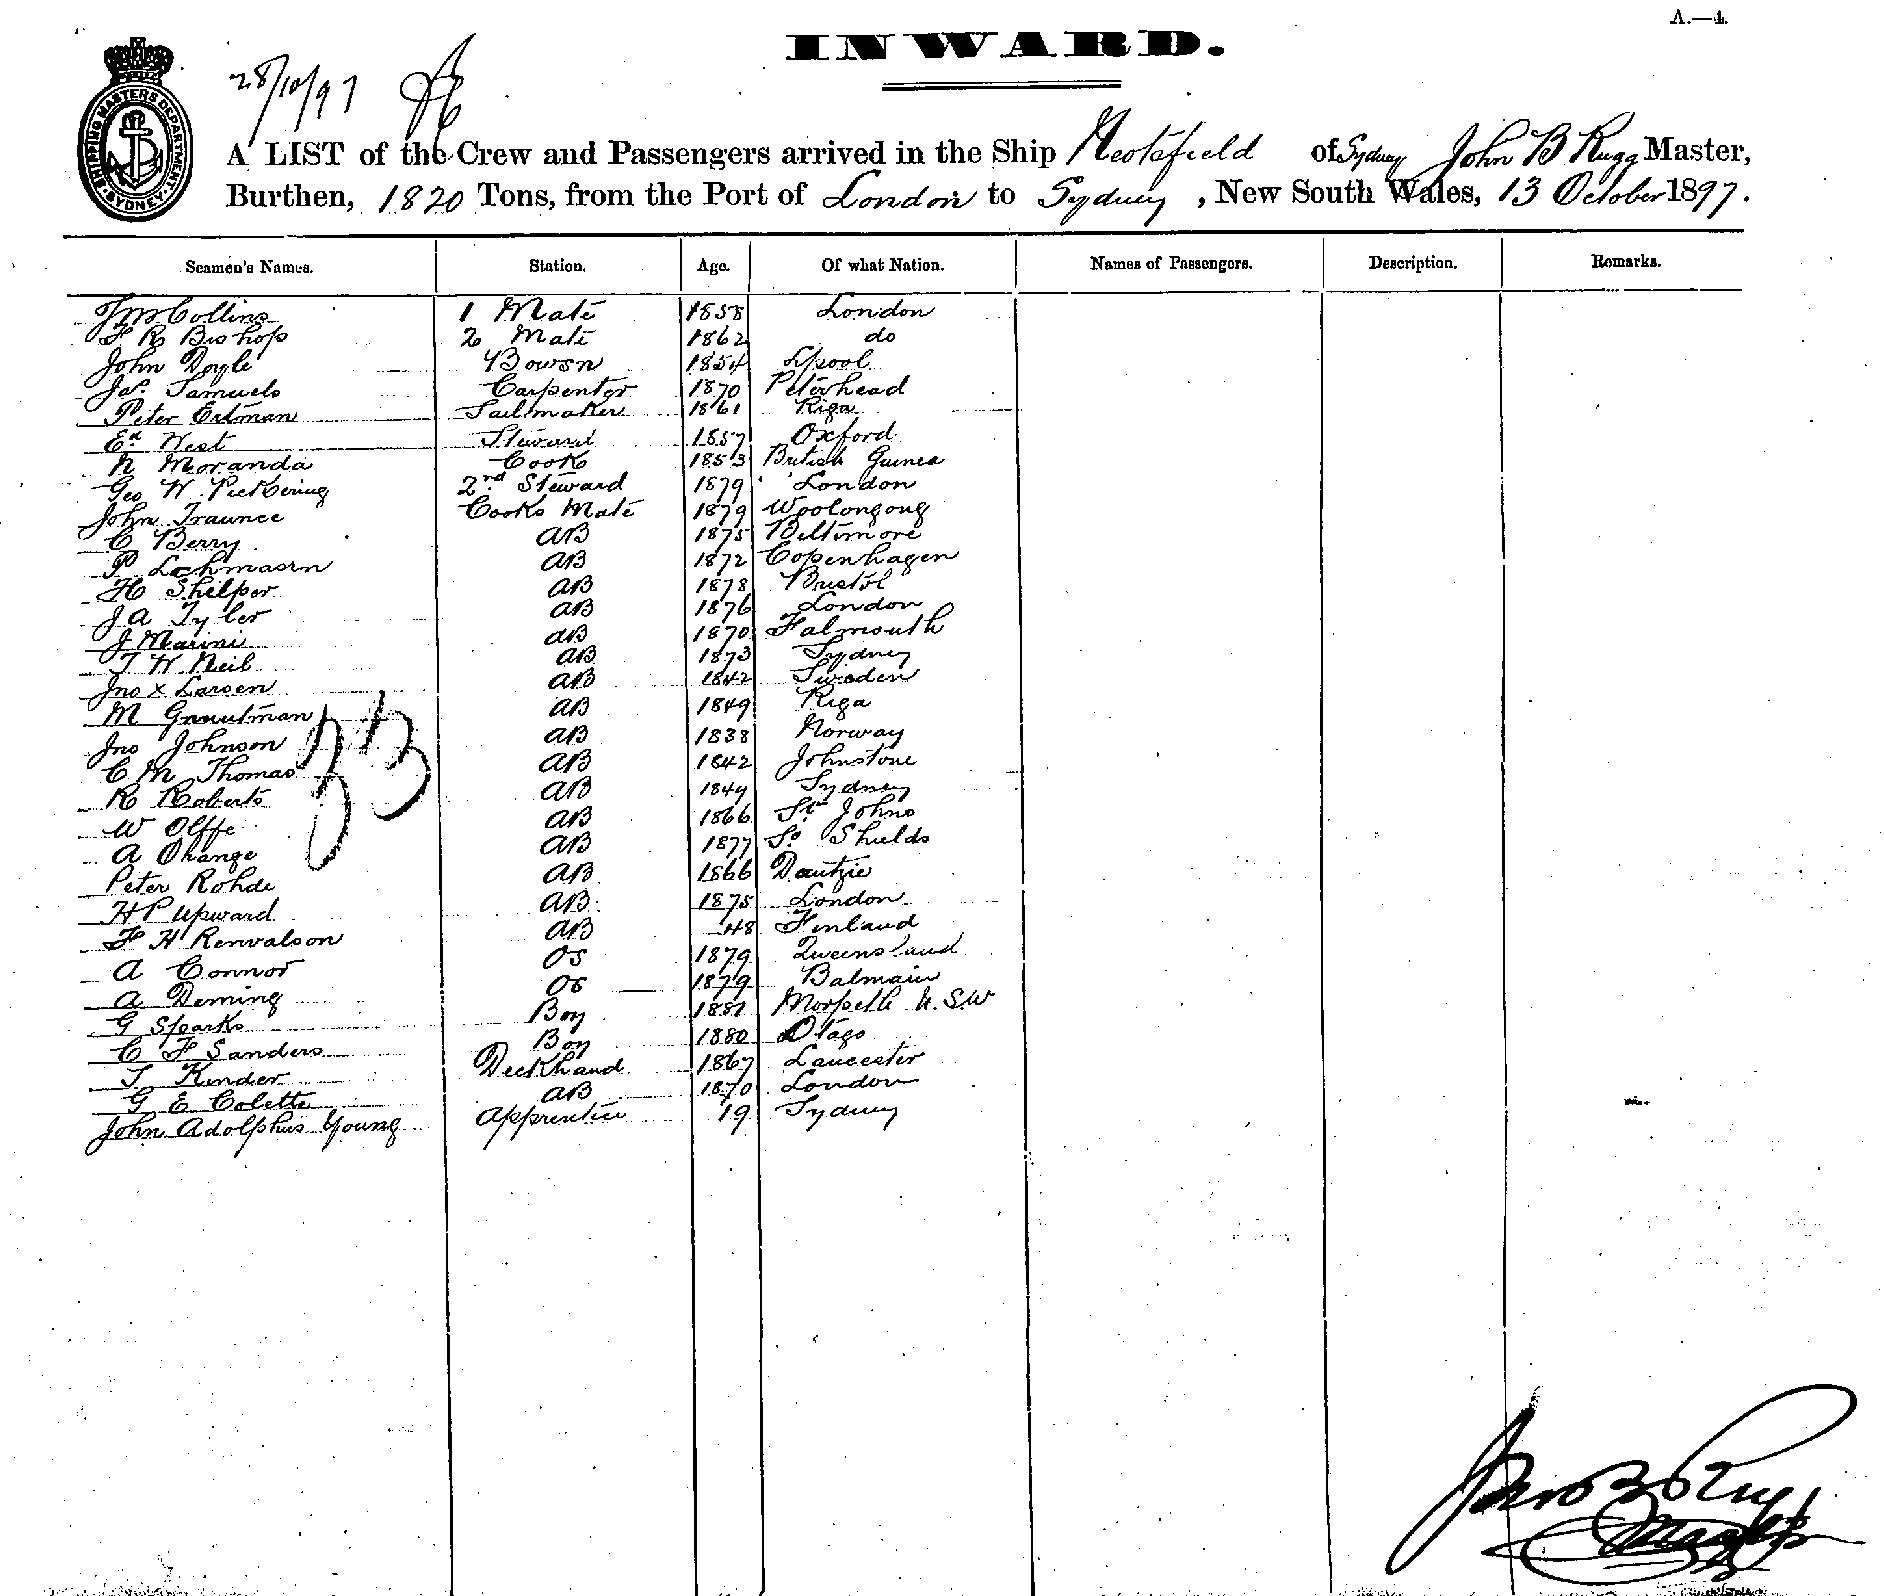 A.—4.
INWARD.
28/10/97
SHIPPING MASTERS DEPARTMENT. SYDNEY.
A LIST of the Crew and Passengers arrived in the Ship of Sydney John B Rugg Master,
Burthen, 1820 Tons, from the Port of London to Sydney, New South Wales, 13 October 1897.
Seamen's Names. Station. Age. Of what Nation. Names of Passengers. Description. Remarks.
Collins 1 Mate 1858 London
F R Bishop 2 Mate 1862 do
John Doyle Bowsn 1854 Lpool
Jas. Samuels Carpenter 1870 Peterhead
Peter Ertman Sailmaker 1861 Riga
Ed West Steward 1857 Oxford
N Moranda Cook 1853 British Guinea
Geo W Pickering 2nd Steward 1879 London
John Traunce Cooks Mate 1879 Woolongong
C Berry AB 1875 Beltimore
P AB 1872 Copenhagen
H Shelper AB 1878 Bristol
J A Tyler AB 1876 London
J Marini AB 1870 Falmouth
T W Neil AB 1873 Sydney
Jno x Larsen AB 1842 Sweden
M AB 1849 Riga
Jno Johnson AB 1838 Norway
C M Thomas AB 1842 Johnstone
R Roberts AB 1849 Sydney
W Olffe AB 1866 St Johns
A Ohange AB 1877 So Shields
Peter Rohde AB 1866 Dantzic
H P Upward AB 1875 London
F H Renvalson AB 48 Finland
A Connor OS 1879 Queensland
A Deming OS 1879 Balmain
G Sparks Boy 1881 Morpeth N.S.W
C F Sanders Boy 1880 Otago
T Kinder Deckhand 1867 Lancester
G E Colette AB 1870 London
John Adolphus Young Apprentice 19 Sydney
33
Jno B Rugg
Master